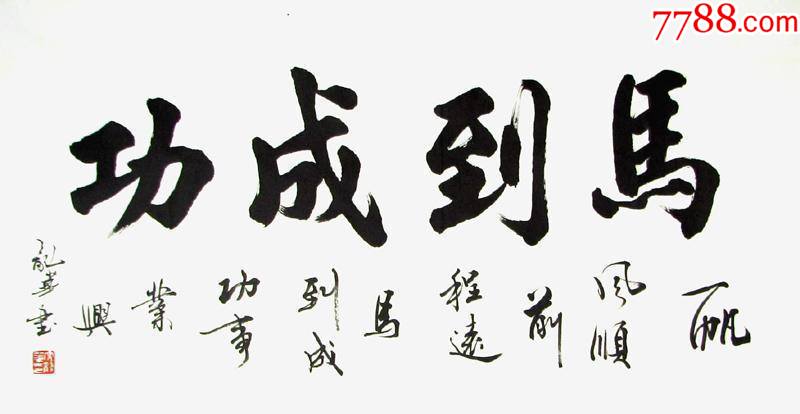 7788.com
馬到成功
一帆
風順
前
程遠
馬
到成
功事
業
興
書